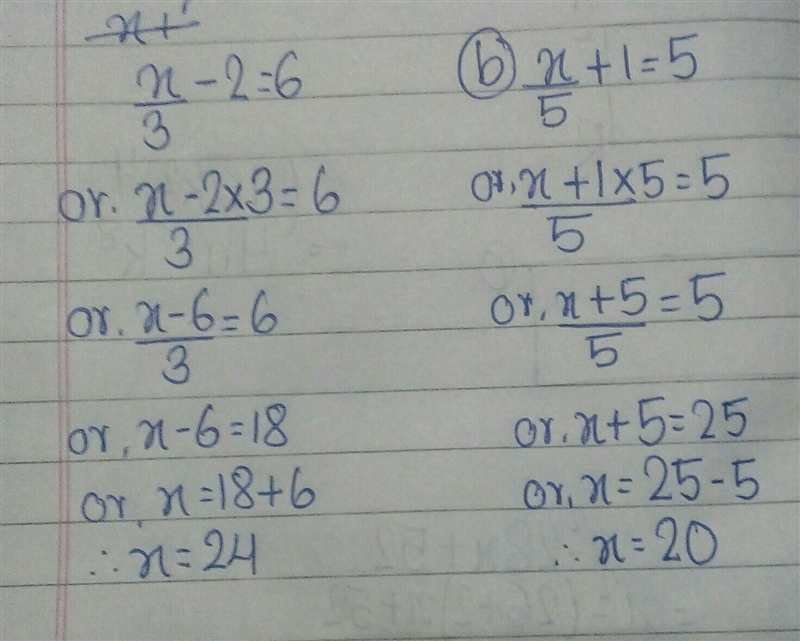 x+
x/3 - 2 = 6
or. (x - 2×3)/3 = 6
or. (x - 6)/3 = 6
or, x - 6 = 18
or, x = 18 + 6
∴ x = 24
(b) x/5 + 1 = 5
or, (x + 1×5)/5 = 5
or, (x + 5)/5 = 5
or, x + 5 = 25
or, x = 25 - 5
∴ x = 20